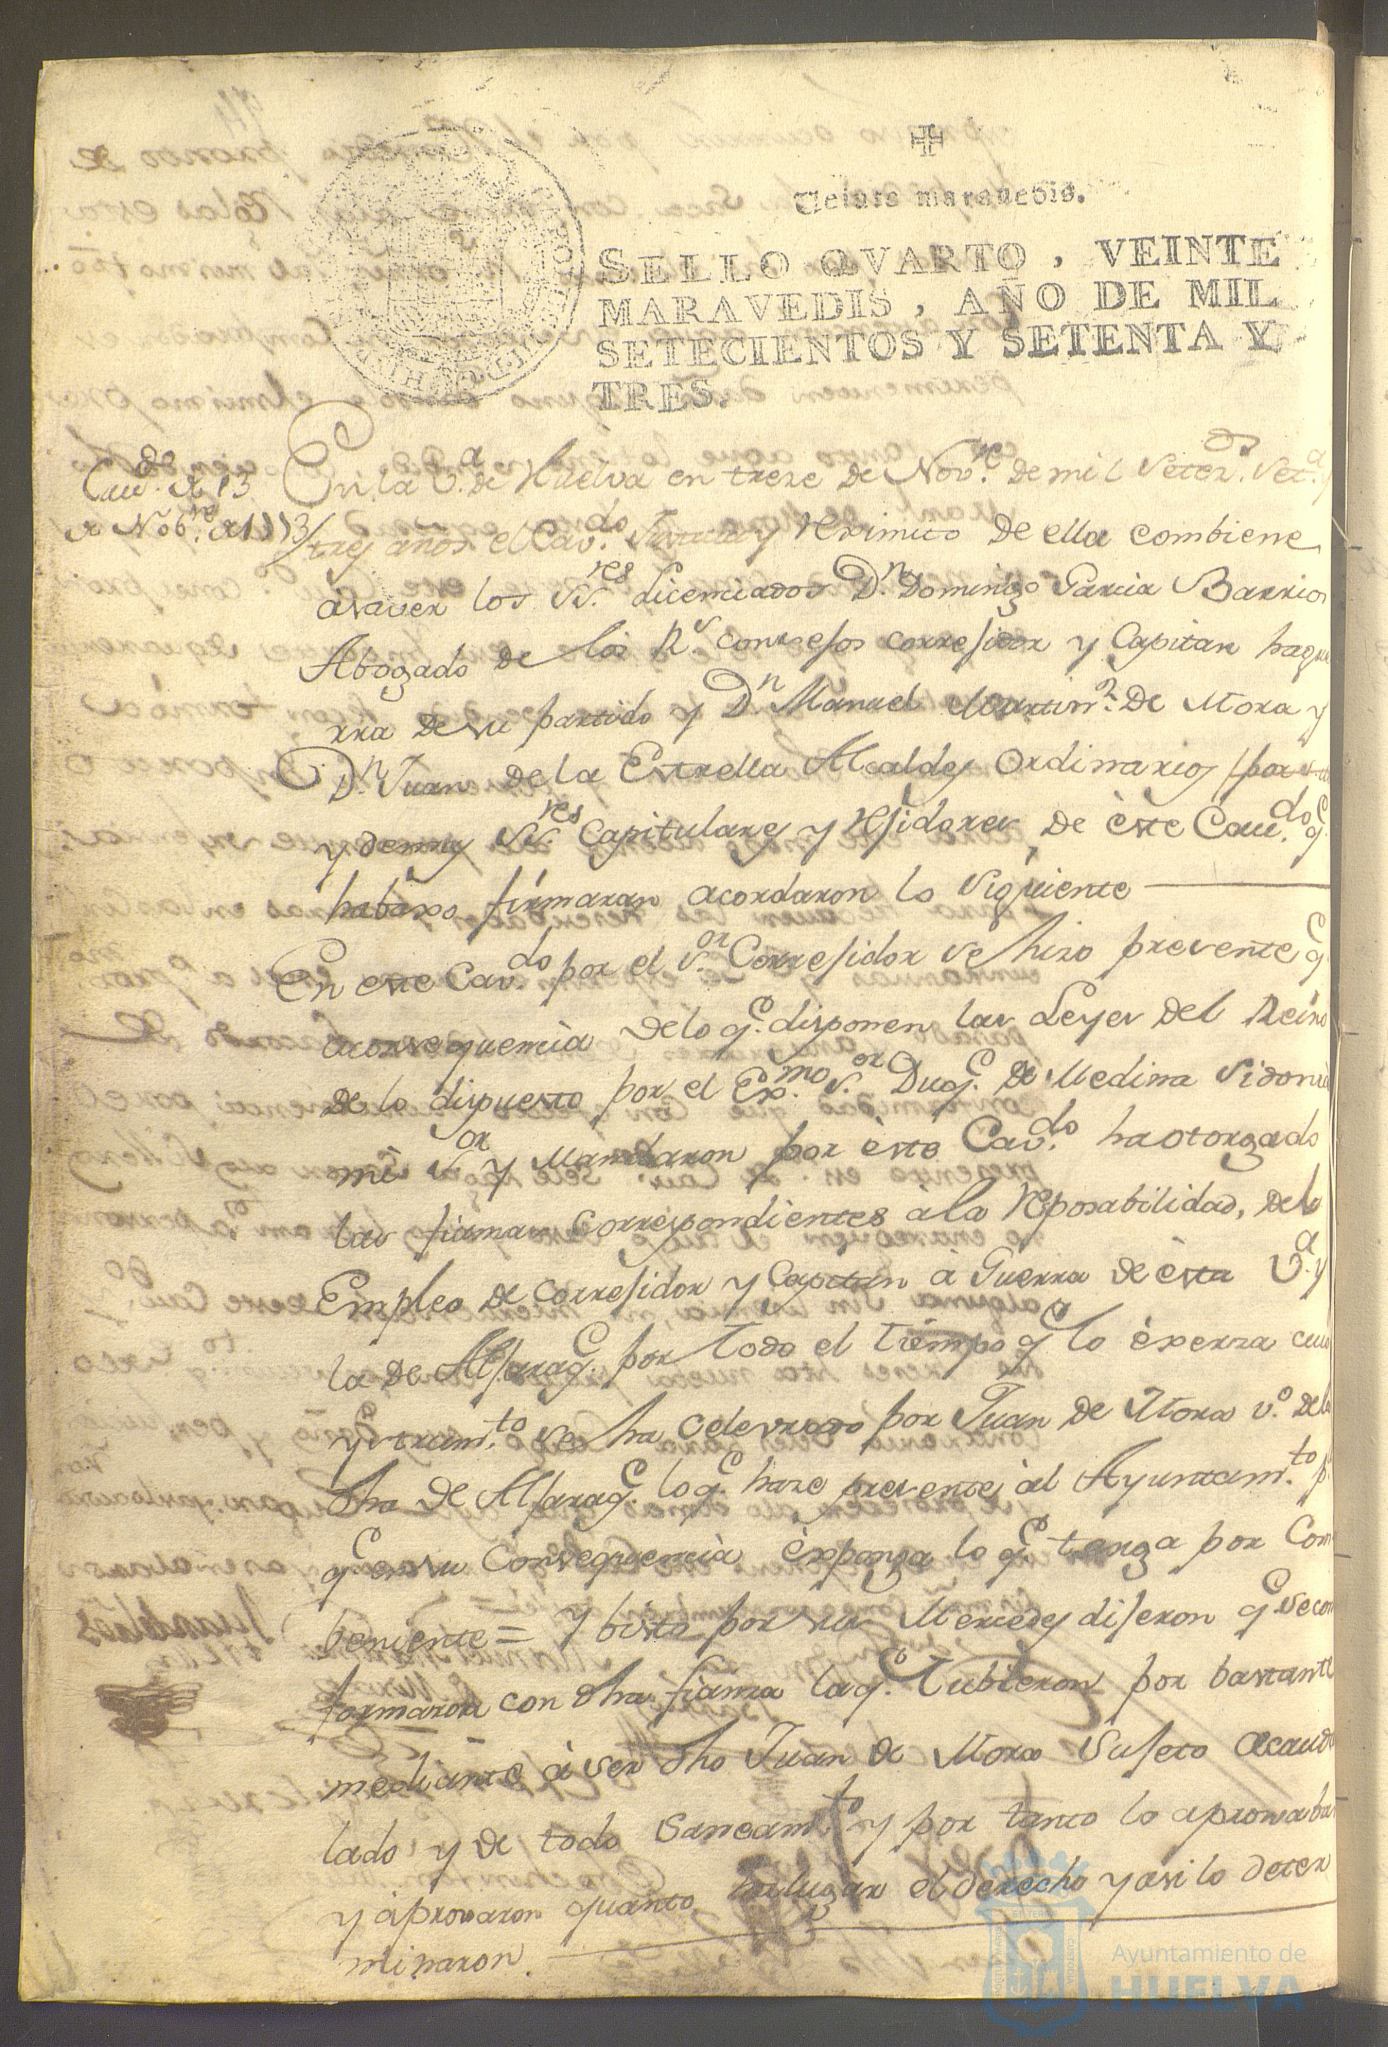 Veinte maravedis.
SELLO QVARTO, VEINTE
MARAVEDIS, AÑO DE MIL
SETECIENTOS Y SETENTA Y
TRES.
Cav.do de 13
de Nob.re de 1773
En la V.a de Huelva en treze de Nov.re de mil Setez.os Set.a y
tres años el Cav.do y Reximto de ella combiene
a saver los SS.res Licenciados D.n Domingo Garcia Barrios
Abogado de los R.s consejos correjidor y Capitan hague
rra de su partido y D.n Manuel Martin.z De Mora y
D.n Juan de la Estrella Alcaldes Ordinarios
y demas SS.res Capitulares y Rejidores De éste Cav.do q.e
habaxo firmaran acordaron lo Siguiente
En este Cav.do por el S.or Correjidor se hizo presente q.e
aconsequencia delo q.e disponen las Leyes Del Reino
De lo dispuesto por el Ex.mo S.or Duq.e De Medina Sidonia
mi S.or y Mandaron por ésto Cav.do ha otorgado
las firmas Correspondientes á la Reposabilidad, Del
Empleo De Correjidor y Capitan á Guerra De ésta V.a y
la De Alfaraq.e por todo el tiempo q.e lo éxerza cuio
ystrum.to se ha celevrado por Juan De Mora v.o De la
dha De Alfaraq.e lo q.e haze presente al Ayuntam.to p.a
q.e en su Consequencia éxponga lo q.e tenga por Com
beniente = Y bista por sus Mercedes dijeron q.e se con
formaron con dha fianza la q.e Tubieron por bastante
mediante á ser dho Juan De Mora Sujeto acauda
lado y De todo Saneam.to y por tanto lo aprovaban
y áprovaron quanto ha lugar el derecho y asi lo deter
minaron.
Ayuntamiento de
HUELVA